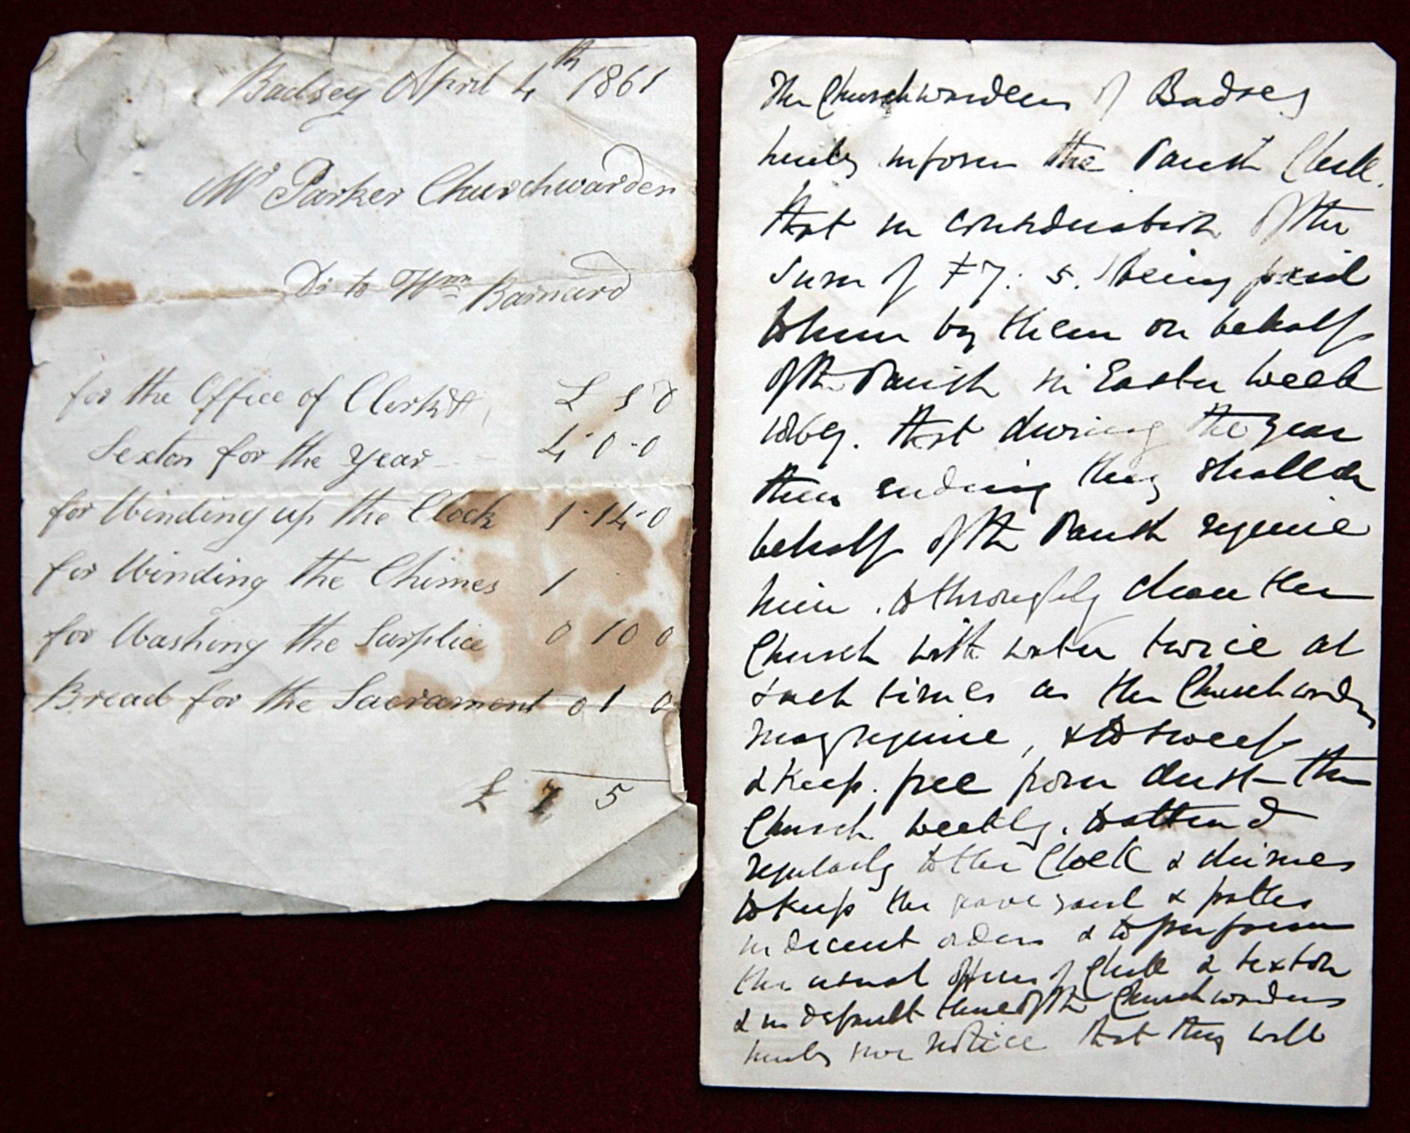 Badsey April 4th 1861
Mr Parker Churchwarden
Dr to Wm Barnard
for the Office of Clerk &
Sexton for the Year 4-0-0
for Winding up the Clock 1-14-0
for Winding the Chimes 1
for Washing the Surplice 0 10 0
Bread for the Sacrament 0 1 0
£ 7 5
The Churchwardens of Badsey
hereby inform the Parish Clerk.
that in consideration of the
sum of £7. 5. being paid
to him by them on behalf
of the Parish in Easter Week
that during the year
then ending they shall on
behalf of the Parish require
him . to throughly clean the
Church with water twice at
such times as the Churchwardens
may require, & to sweep
& keep . free from dust the
Church weekly. to attend
regularly to the Clock & chimes
to keep the grave yard & paths
in decent order & to perform
the usual offices of Clerk & sexton
& in default thereof the Churchwardens
hereby give notice that they will